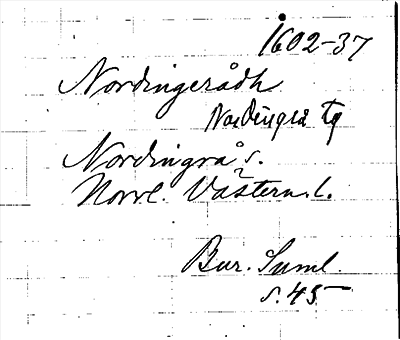 1602-37
Nordingerådh
Nordingrå tg
Nordingrå s.
Norrl. Västern.l.
Bur. Suml.
s. 45